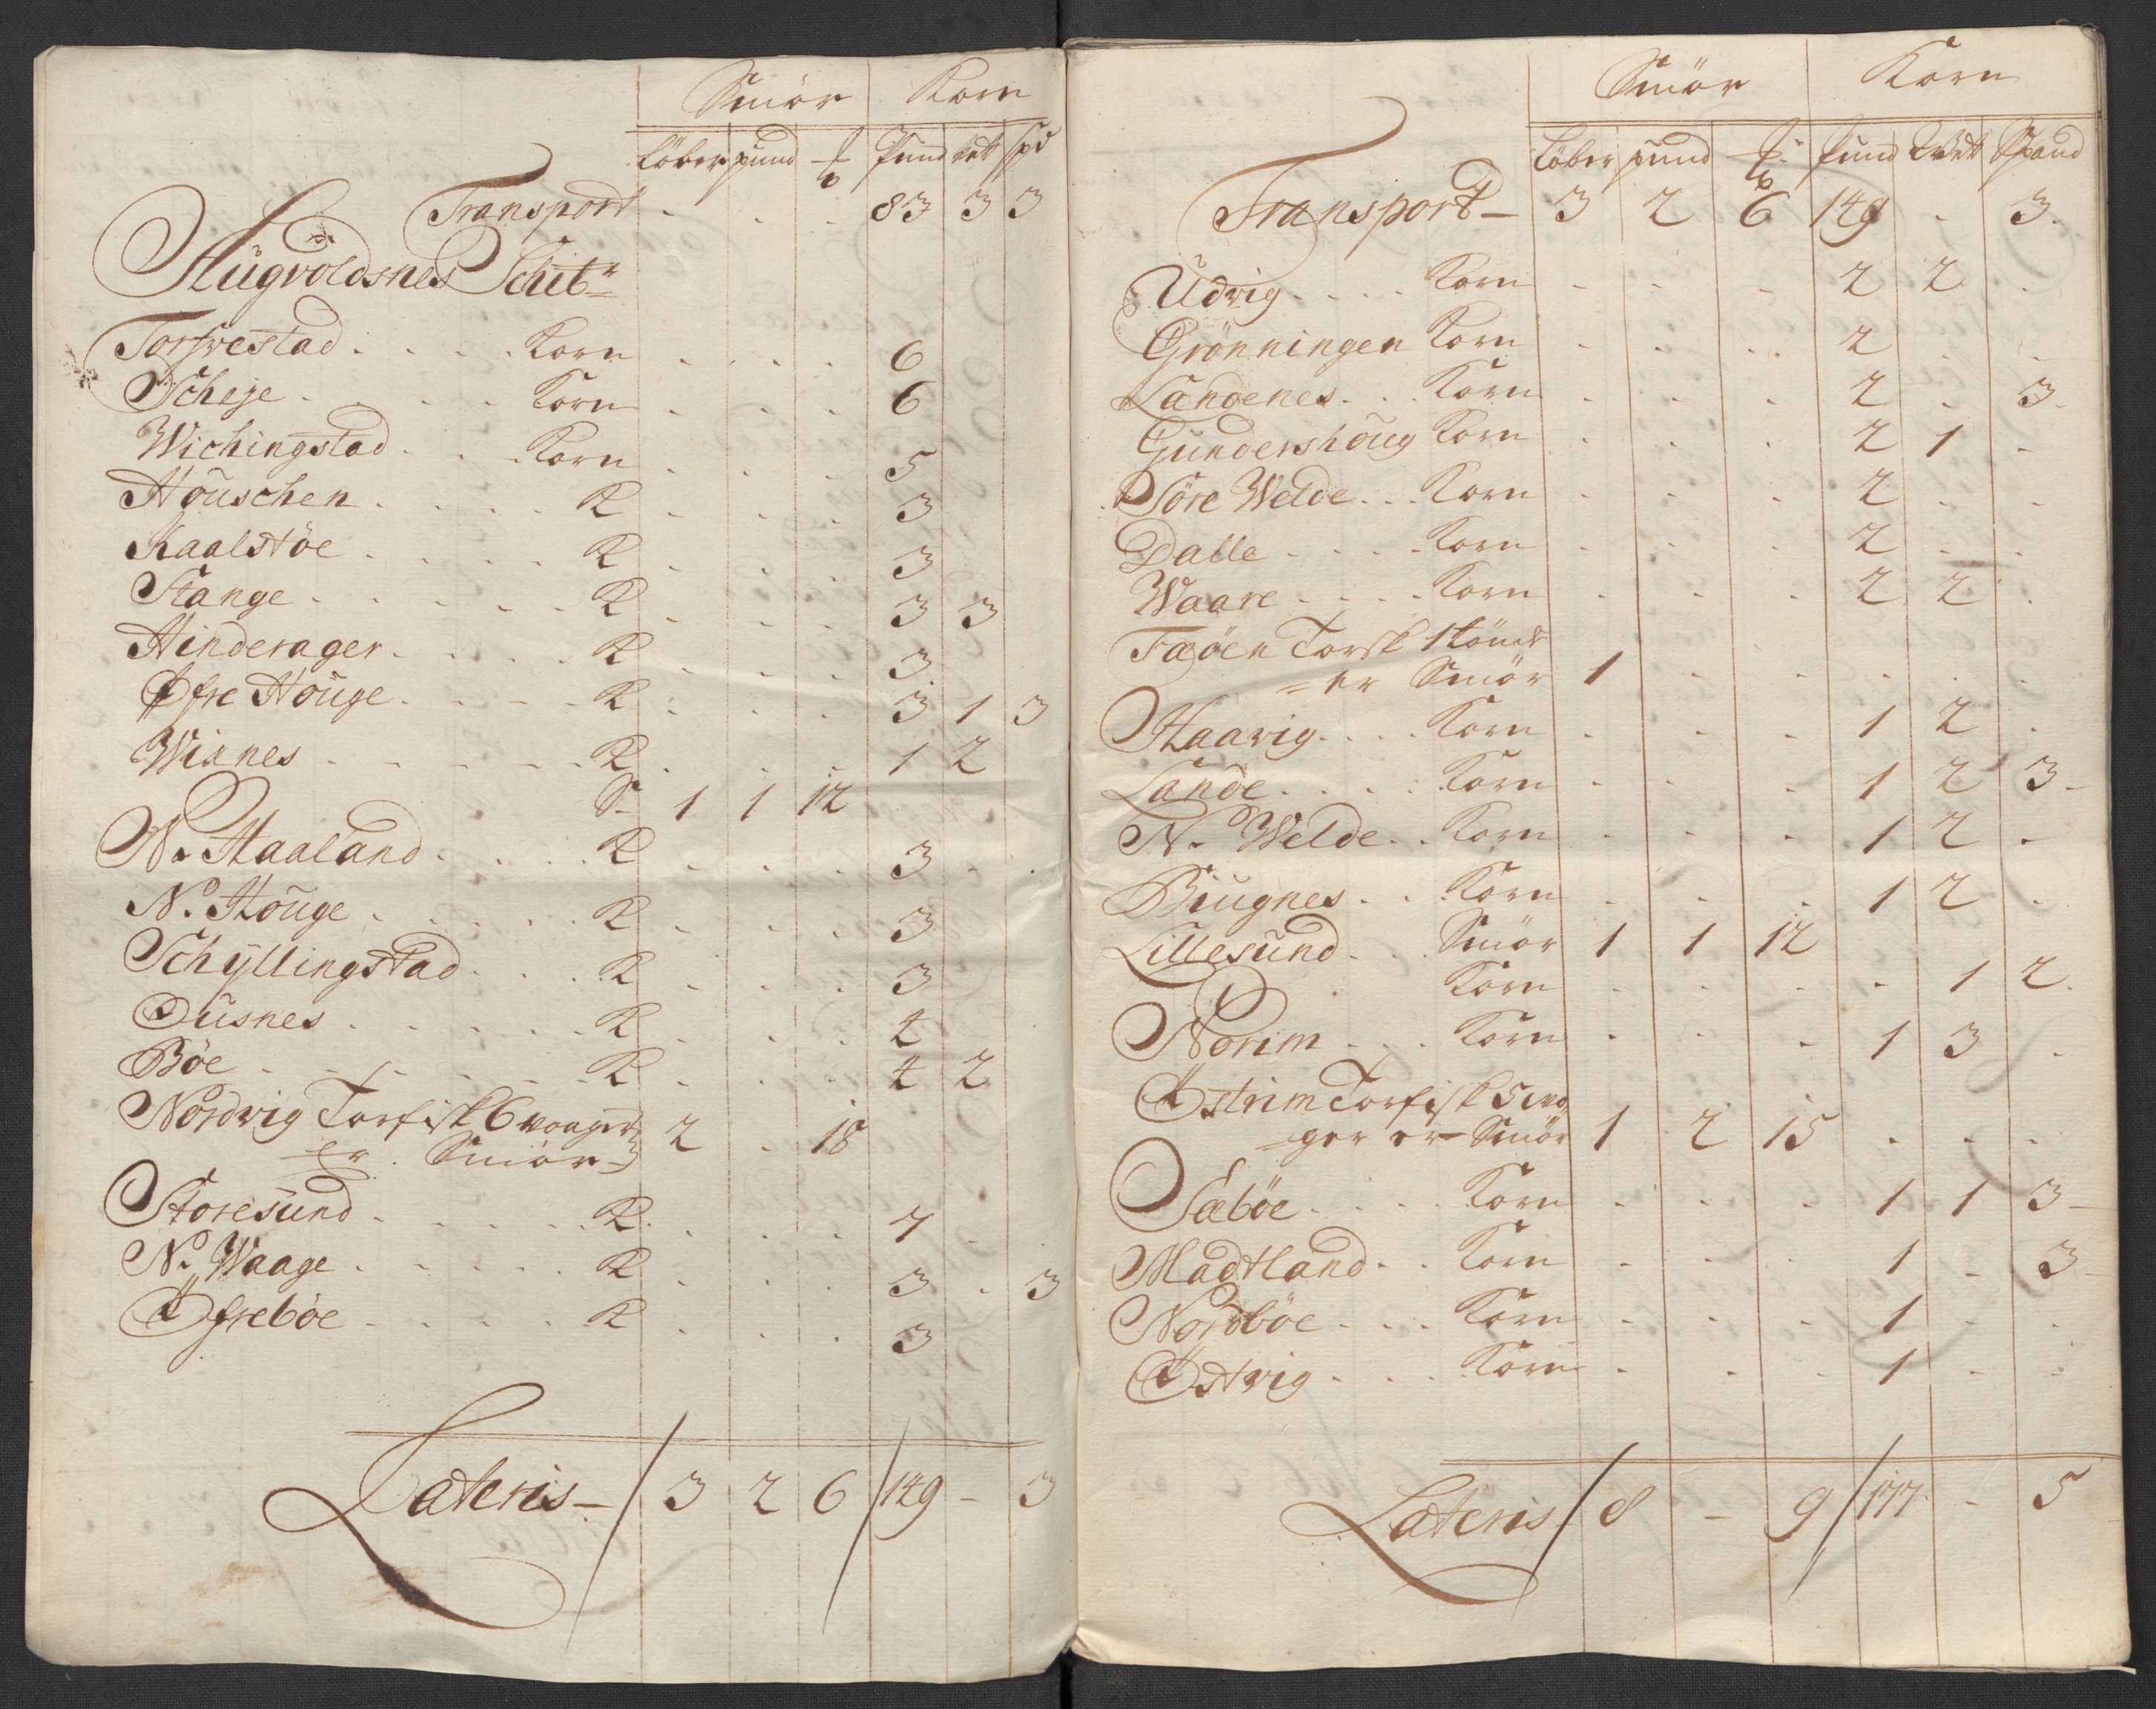 Smör Korn
Löber pund ℔ Pund vet spd
Transport . . . 83 3 3
Augvoldsnes Schibr
Torfvestad . . . . Korn . . . . 6
Scheje . . . . Korn . . . 6
Wichingstad . . . Korn . . . 5
Houschen . . . . K . . . 3
Kaalstöe . . . . K . . . 3
Stange . . . . . K . . . 3 3
Hinderager . . . . K . . . 3
Öfre Houge . . . . K . . . 3 1 3
Winnes . . . . . K . . . 1 2
S. 1 1 12
N. Haaland . . . . K . . . 3 . .
N. Houge . . . . . K . . . 3
Schyllingstad . . . K . . . 3
Ousnes . . . . . K . . . 4
Böe . . . . . . K . . . 4 2
Nordvig Torfisk 6 voager
er . Smör 2 . 18
Storesund . . . . . K . . . . 7 .
N. Waage . . . . . K . . . 3 . 3
Öfreböe . . . . K . . . 3
Lateris - / 3 2 6 / 149 - 3
Smör Korn
Löber pund ℔ pund Vet Spand
Transport - 3 2 6 149 . 3.
Udvig . . . . Korn . . . 2 2 .
Grönningen Korn . . . 2 . .
Sandenes . . . Korn . . . 2 . 3.
Gundershoug Korn . . . 2 1 .
Söre Welde . . . Korn . . . 2 . .
Dalle . . . . Korn . . . 2 . .
Waare . . . . Korn . . . 2 2 .
Fæöen Torsk 1 tönde
= er Smör 1 . . . . .
Haavig . . . . Korn . . . 1 2 .
Sande . . . . Korn . . . 1 2 3 -
N. Welde . . Korn . . . 1 2 -
Biugnes . . Korn . . . 1 2 .
Lillesund . . . Smör 1 1 12
. Korn . . . . 1 2.
Norim . . . Korn . . . 1 3 .
Östrim Torfisk 5 wo
= ger er Smör 1 2 15 . . .
Sæböe . . . . Korn . . . 1 1 3 -
Madtland . . Korn . . . 1 - 3 -
Nordböe . . . Korn . . . 1 . .
Östvig . . . Korn . . . 1 . .
Lateris / 8 - 9 / 177 - 5